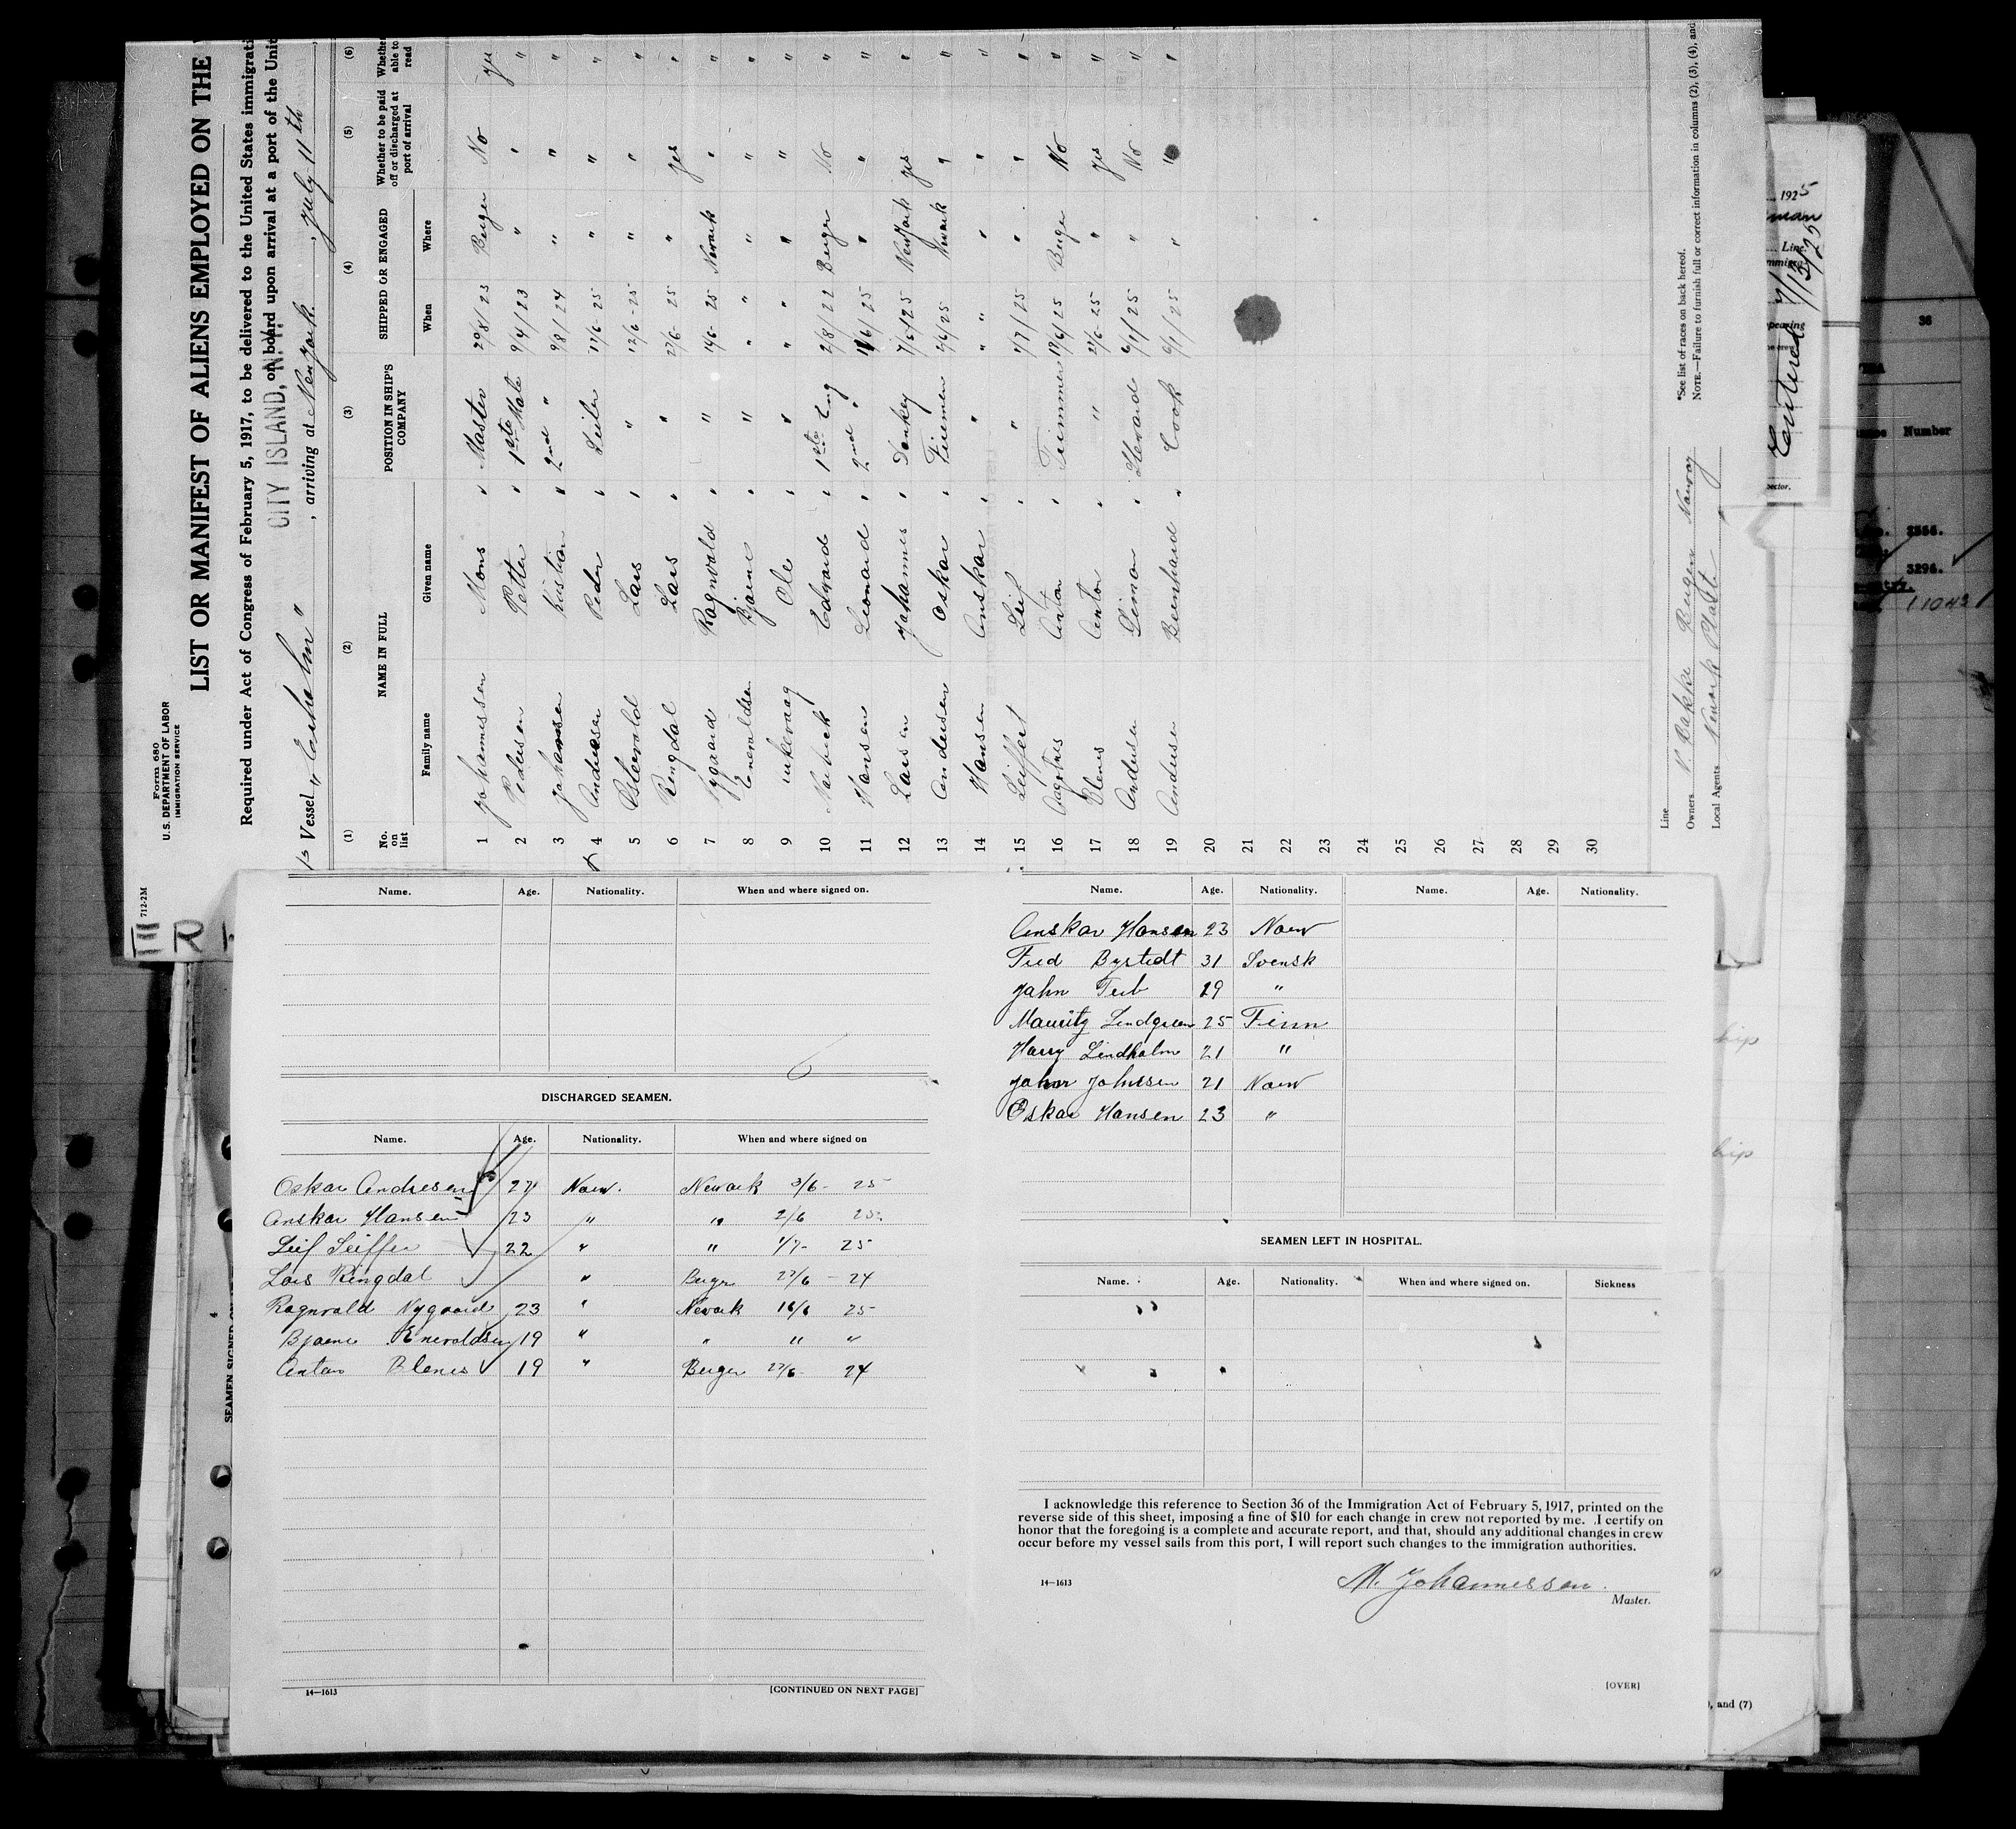 Form 680
U.S. DEPARTMENT OF LABOR
IMMIGRATION SERVICE
712-2M
LIST OR MANIFEST OF ALIENS EMPLOYED ON THE
Required under Act of Congress of February 5, 1917, to be delivered to the United States immigrati
CITY ISLAND, N.Y.
on board upon arrival at a port of the Unit
Vessel " " , arriving at New York , July 11th
(1) (2) (3) (4) (5) (6)
No. on list NAME IN FULL POSITION IN SHIP'S COMPANY SHIPPED OR ENGAGED Whether to be paid off or discharged at port of arrival Whether able to read
Family name Given name When Where
1 Johannessen Mons " Master 29/8/23 Bergen No yes
2 Pedersen Petter " 1ste Mate 9/4/23 " " "
3 Johansen Kristian " 2nd " 9/8/24 " " "
4 Andresen Peder " 17/6-25 " " "
5 Ostervold Lars " " 12/6-25 " " "
6 Ringdal Lars " " 27/6-25 " yes "
7 Nygaard Ragnvald " " 16/6-25 Newark " "
8 Eneraldsen Bjarne " " " " " "
9 Ole " " " " " "
10 Edvard " 1ste Eng 2/8/22 Bergen No "
11 Hansen Leonard " 2nd " 11/6/25 " " "
12 Larsen Johannes " Donkey 7/6/25 New York yes "
13 Andersen Oskar " Firemen 3/6/25 Newark " "
14 Hansen Anskar " " " " " "
15 Leiffert Leif " " 1/7/25 " " "
16 Anton " Trimmer 19/6/25 Bergen No "
17 Blenes Anton " " 27/6-25 " yes "
18 Andersen Simon " Steward 6/1/25 " No "
19 Andersen Bernhard " Cook 6/1/25 " " "
20
21
22
23
24
25
26
27
28
29
30
Line
Owners V. Bakke Bergen Norway
Local Agents Newark
*See list of races on back hereof.
NOTE.—Failure to furnish full or correct information in columns (2), (3), (4), and
1925
Line
Entered 7/13/25
36
Number
3296.
11043
, and (7)
Name. Age. Nationality. When and where signed on.
DISCHARGED SEAMEN.
Name. Age. Nationality. When and where signed on
Oskar Andresen 27 Norw. Newark 3/6- 25
Anskar Hansen 23 " " 2/6 25
Leif Seiffer 22 " " 1/7- 25
Lars Ringdal " Berger 27/6 - 24
Ragnvald Nygaard 23 " Newark 16/6 25
Bjarne Eneraldsen 19 " " " "
Anton Blenes 19 " Berger 27/6- 24
14—1613
[CONTINUED ON NEXT PAGE]
Name. Age. Nationality. Name. Age. Nationality.
Anskar Hansen 23 Norw
Fred Bystedt 31 Svensk
John 29 "
Mauritz Lindgren 25 Finn
Harry Lindholm 21 "
Johan Johnsen 21 Norw
Oskar Hansen 23 "
SEAMEN LEFT IN HOSPITAL.
Name. Age. Nationality. When and where signed on. Sickness
I acknowledge this reference to Section 36 of the Immigration Act of February 5, 1917, printed on the
reverse side of this sheet, imposing a fine of $10 for each change in crew not reported by me. I certify on
honor that the foregoing is a complete and accurate report, and that, should any additional changes in crew
occur before my vessel sails from this port, I will report such changes to the immigration authorities.
14—1613
M. Johannessen.
Master.
[OVER]